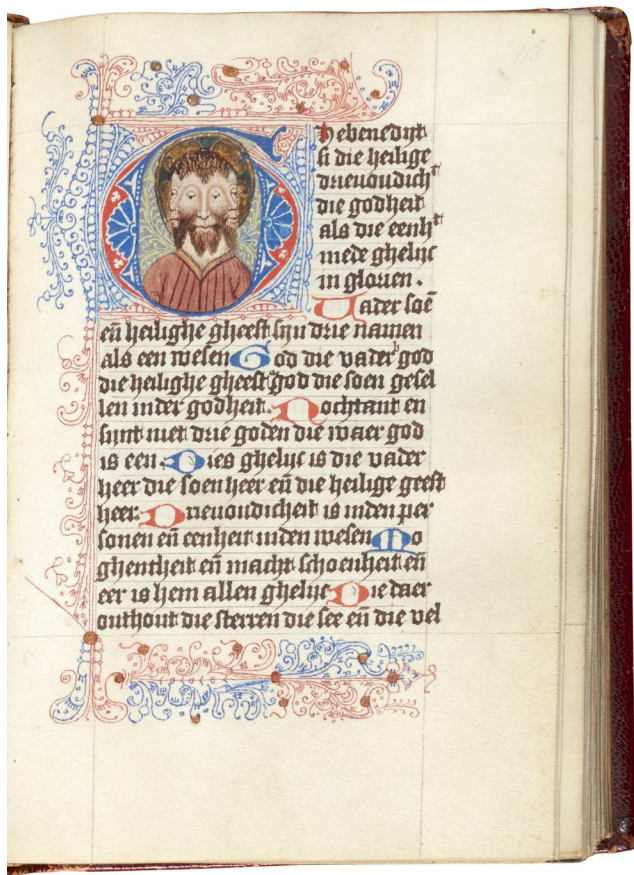 Ghebenedijt
si die heilige
drieuoudicht
die godheit
als die eenht
mede ghelijc
in glorien.
Vader soē
eñ heilighe gheest sijn drie namen
als een wesen God die vader god
die heilighe gheest god die soen gesel
len inder godheit. Nochtant en
sijnt niet drie goden die waer god
is een. Dies ghelijc is die vader
heer die soen heer eñ die heilige geest
heer. Drieuoudicheit is inden per
sonen eñ eenheit inden wesen Mo
ghentheit eñ macht schoenheit eñ
eer is hem allen ghelijc Die daer
onthout die sterren die see eñ die vel